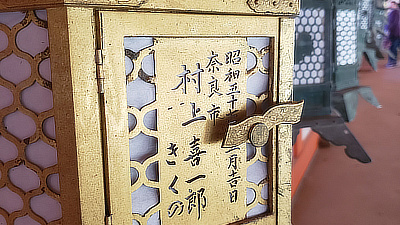 昭和五十 月吉日
奈良市
村上喜一郎
きくの